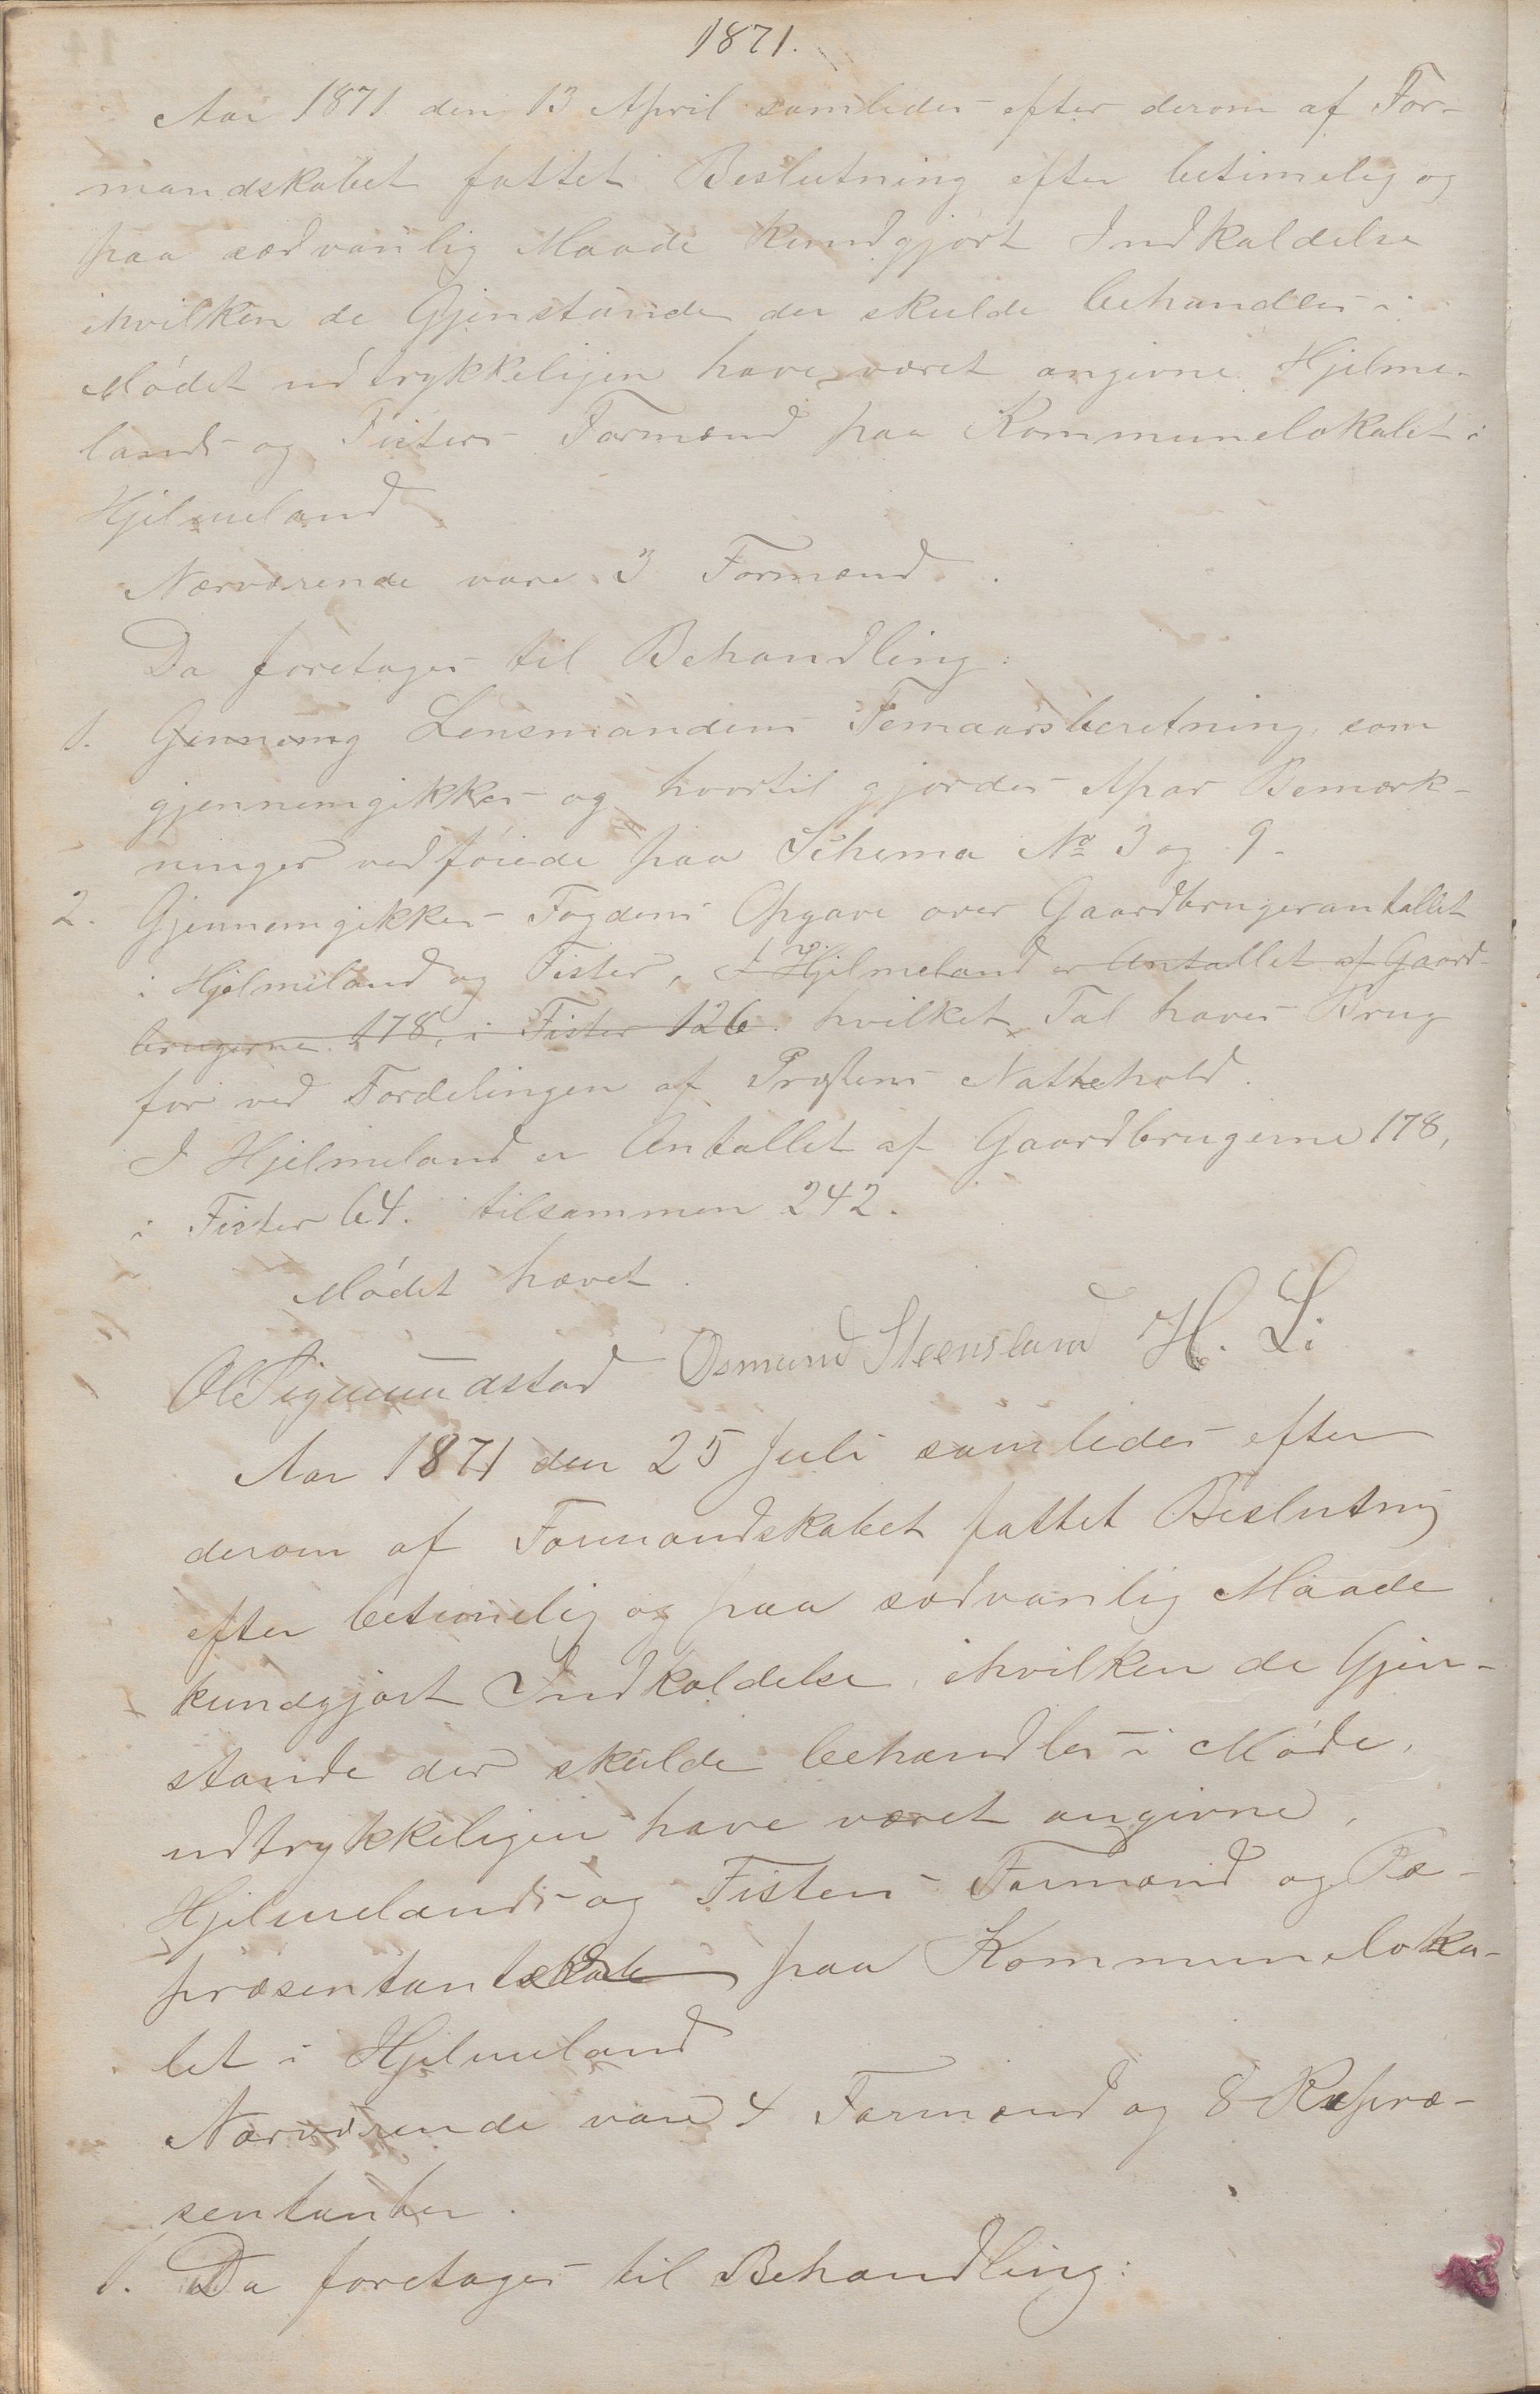 1871.
Aar 1871 den 13 April samledes efter derom af For-
mandskabet fattet Beslutning efter betimelig og
paa sædvanlig Maade kundgjort Indkaldelse
ihvilken de Gjenstande der skulde behandles i
Mødet udtrykkeligen have været angivne Hjelme-
lands og Fisters Formænd paa Kommunelokalet i
Hjelmeland
Nærværende vare 3 Formænd.
Da foretages til Behandling:
1. Gjennemg Lensmandens Femaarsberetning, som
gjennemgikkes og hvortil gjordes Apar Bemærk-
ninger vedføiede paa Schema No 3 og 9.
2. Gjennemgikkes Fogdens Opgave over Gaardbrugerantallet
i Hjelmeland og Fister, I Hjelmeland er Antallet af Gaard-
brugerne 178, i Fister 126. hvilket Tal haves Brug
for ved Fordelingen af Præstens Nattehold.
I Hjelmeland er Antallet af Gaardbrugerne 178,
i Fister 64. tilsammen 242.
Mødet hævet.
Ol Sigmundstad Osmund Steensland H. Li
Aar 1871 den 25 Juli samledes efter
derom af Formandskabet fattet Beslutning
efter betimelig og paa sædvanlig Maade
kundgjort Indkaldelse, ihvilken de Gjen-
stande der skulde behandles i Møde,
udtrykkeligen have været angivne,
Hjelmelands og Fisters Formænd og Re-
præsentantskab paa Kommuneloka-
let i Hjelmeland
Nærværende vare 4 Formænd og 8 Repræ-
sentanter.
1. Da foretages til Behandling: